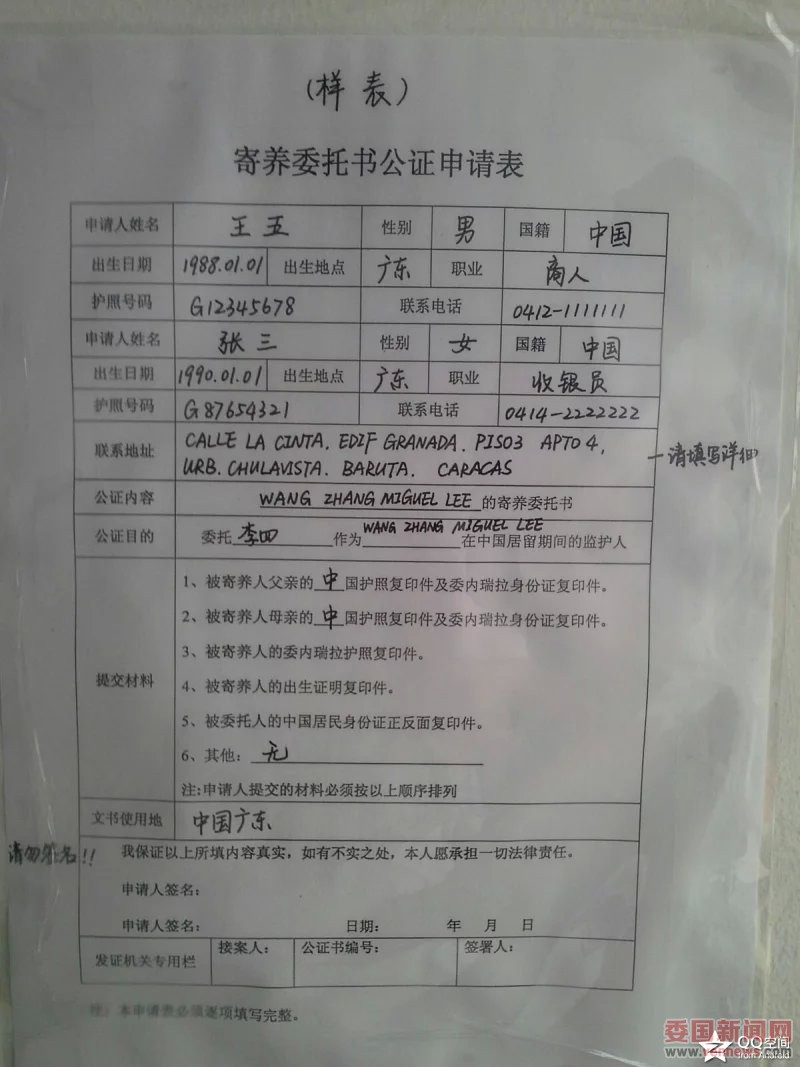 (样表)
寄养委托书公证申请表
申请人姓名 王五 性别 男 国籍 中国
出生日期 1988.01.01 出生地点 广东 职业 商人
护照号码 G12345678 联系电话 0412-1111111
申请人姓名 张三 性别 女 国籍 中国
出生日期 1990.01.01 出生地点 广东 职业 收银员
护照号码 G87654321 联系电话 0414-2222222
联系地址 CALLE LA CINTA. EDIF GRANADA. PISO3 APTO 4,
URB. CHULAVISTA. BARUTA. CARACAS
—请填写详细
公证内容 WANG ZHANG MIGUEL LEE 的寄养委托书
公证目的 委托 李四 作为 WANG ZHANG MIGUEL LEE 在中国居留期间的监护人
提交材料
1、被寄养人父亲的 中 国护照复印件及委内瑞拉身份证复印件。
2、被寄养人母亲的 中 国护照复印件及委内瑞拉身份证复印件。
3、被寄养人的委内瑞拉护照复印件。
4、被寄养人的出生证明复印件。
5、被委托人的中国居民身份证正反面复印件。
6、其他: 无
注:申请人提交的材料必须按以上顺序排列
文书使用地 中国广东
请勿签名!!
我保证以上所填内容真实，如有不实之处，本人愿承担一切法律责任。
申请人签名:
申请人签名: 日期: 年 月 日
发证机关专用栏 接案人: 公证书编号: 签署人:
注：本申请表必须逐项填写完整。
委国新闻网
www.vennews.com
QQ空间
from Android